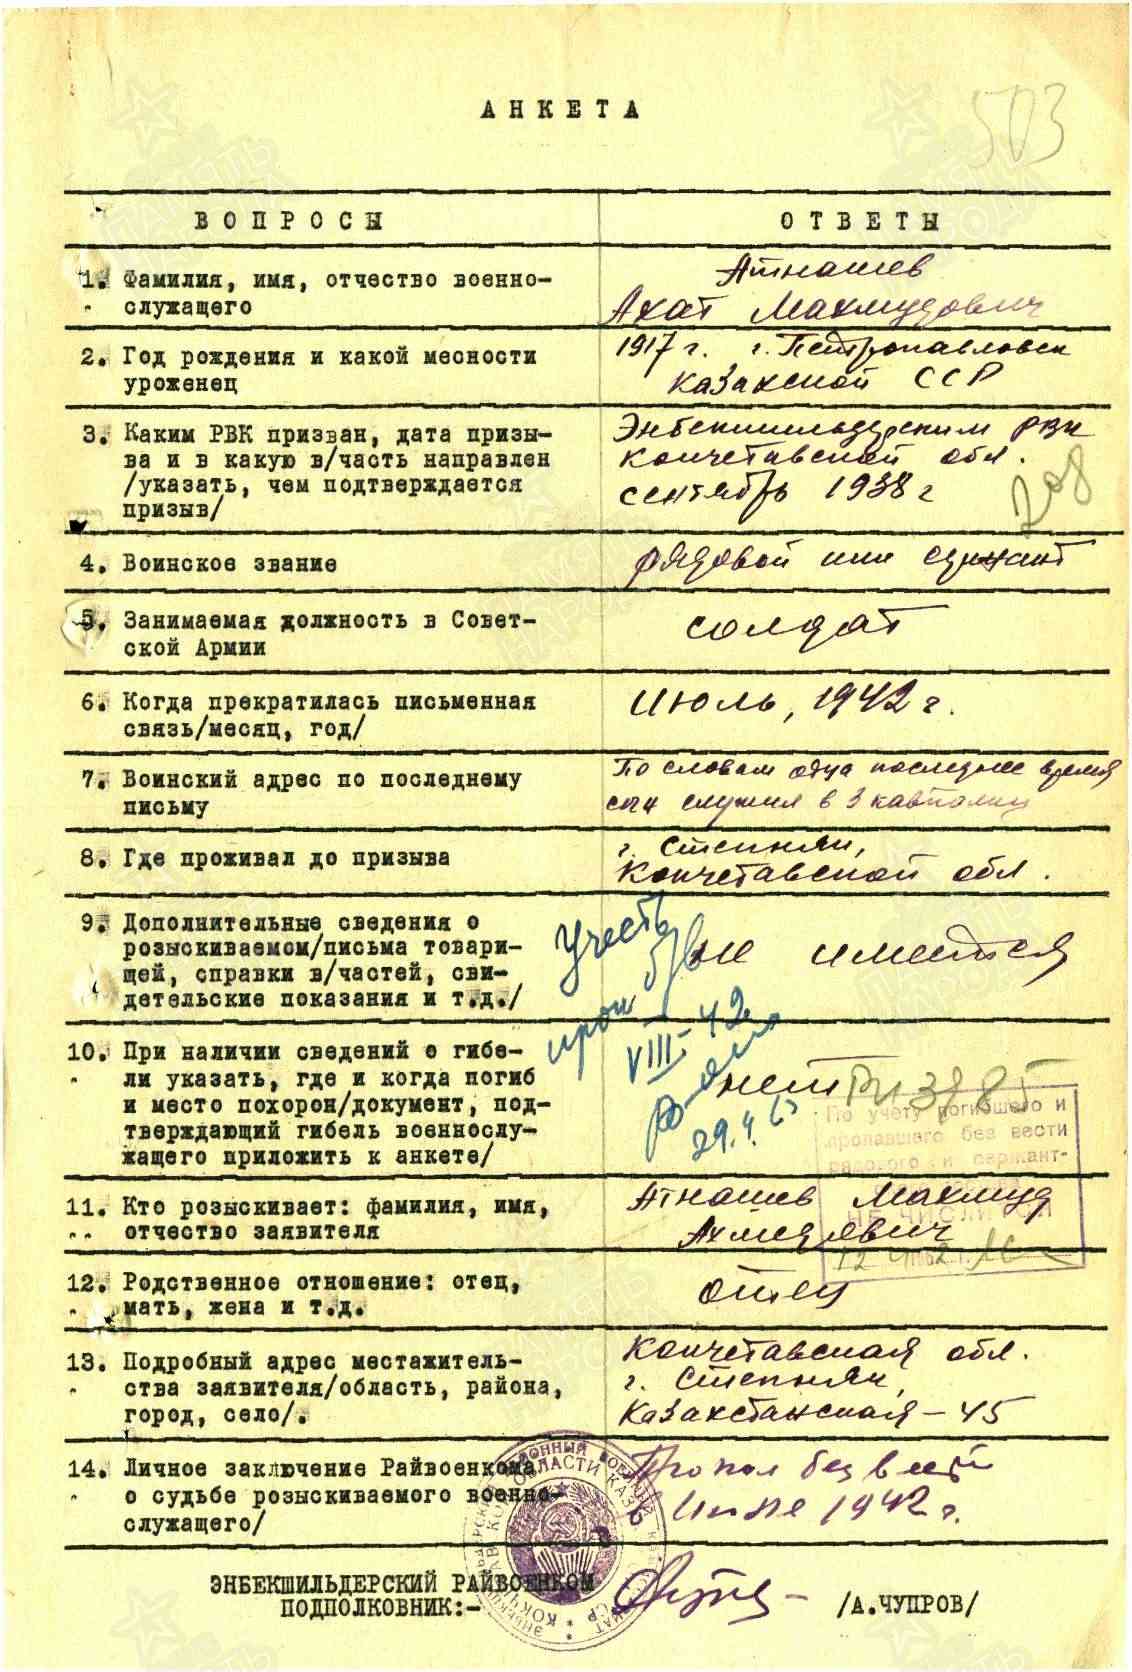 503
АНКЕТА
ВОПРОСЫ
ОТВЕТЫ
1. Фамилия, имя, отчество военно-
служащего
Атнашев
Ахат Махмудович
2. Год рождения и какой месности
уроженец
1917 г. г. Петропавловск
Казахской ССР
3. Каким РВК призван, дата призы-
ва и в какую в/часть направлен
/указать, чем подтверждается
призыв/
Энбекшильдерским РВК
Кокчетавской обл.
сентябрь 1938 г
208
4. Воинское звание
рядовой или сержант
5. Занимаемая должность в Совет-
ской Армии
солдат
6. Когда прекратилась письменная
связь/месяц, год/
Июль, 1942 г.
7. Воинский адрес по последнему
письму
По словам отца последнее время
сын служил в 3 кавполку
8. Где проживал до призыва
г. Степняк,
Кокчетавской обл.
9. Дополнительные сведения о
розыскиваемом/письма товари-
щей, справки в/частей, сви-
детельские показания и т.д./
не имеется
Учесть
проп б/в
VIII-42
29.4.63
10. При наличии сведений о гибе-
ли указать, где и когда погиб
и место похорон/документ, под-
тверждающий гибель военнослу-
жащего приложить к анкете/
нет
По учету погибшего и
пропавшего без вести
рядового и сержант-
НЕ ЧИСЛИТСЯ
11. Кто розыскивает: фамилия, имя,
отчество заявителя
Атнашев Махмуд
Ахмедзевич
12. Родственное отношение: отец,
мать, жена и т.д.
отец
13. Подробный адрес местажитель-
ства заявителя/область, района,
город, село/.
Кокчетавская обл.
г. Степняк,
Казахстанская-45
14. Личное заключение Райвоенкома
о судьбе розыскиваемого военно-
служащего/
Пропал без вести
в Июле 1942 г.
ЭНБЕКШИЛЬДЕРСКИЙ РАЙВОЕНКОМ
ПОДПОЛКОВНИК:-
/А.ЧУПРОВ/